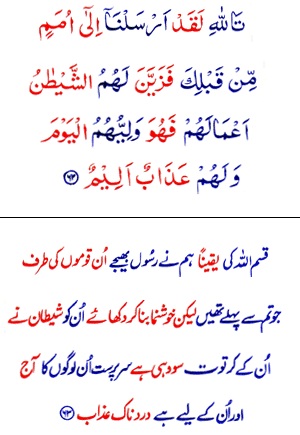 تَاللّٰهِ لَقَدْ اَرْسَلْنَاۤ اِلٰۤی اُمَمٍ
مِّنْ قَبْلِكَ فَزَیَّنَ لَهُمُ الشَّیْطٰنُ
اَعْمَالَهُمْ فَهُوَ وَلِیُّهُمُ الْیَوْمَ
وَلَهُمْ عَذَابٌ اَلِیْمٌ ﴿۶۳﴾
قسم اللہ کی یقیناً ہم نے رسُول بھیجے اُن قوموں کی طرف
جو تم سے پہلے تھیں لیکن خوشنما بنا کر دکھائے اُن کو شیطان نے
اُن کے کرتوت سو وہی ہے سرپرست اُن لوگوں کا آج
اور اُن کے لیے ہے دردناک عذاب ﴿۶۳﴾